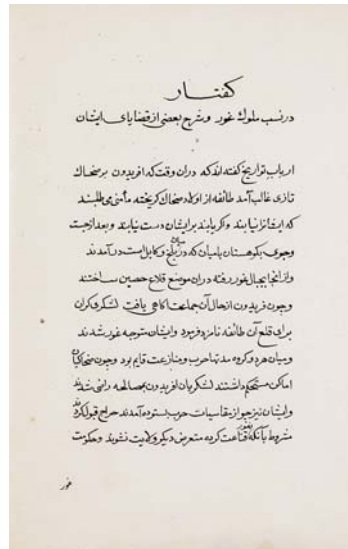 گفتار
در نسب ملوك غور و شرح بعضی از قضایای ایشان
ارباب تواریخ گفته اند که دران وقت که افریدون بر ضحاك
تازی غالب آمد طائفه از اولاد ضحاك گریخته مأمنی می طلبند
که ایشانرا نیابند و اگر یابند بر ایشان دست نیابند و بعد از جست
وجوی بکوهستان بامیان که در میان بلخ و کابل است در آمدند
و از انجا بجبال غور رفته دران موضع قلاع حصین ساختند
و چون فریدون از حال آن جماعت آکاهی یافت لشکری کران
برای قلع آن طائفه نامزد فرمود و ایشان متوجه غور شدند
و میان هر دو کروه مدتها حرب و منازعت قایم بود و چون ضحاکیان
اماکن مستحکم داشتند لشکریان افریدون بمصالحه راضی شدند
و ایشان نیز چو از مقاسیات حرب بستوه آمدند خراج قبول کردند
مشروط بآنکه قناعت کرده متعرض دیکر ولایت نشوند و حکومت
غور